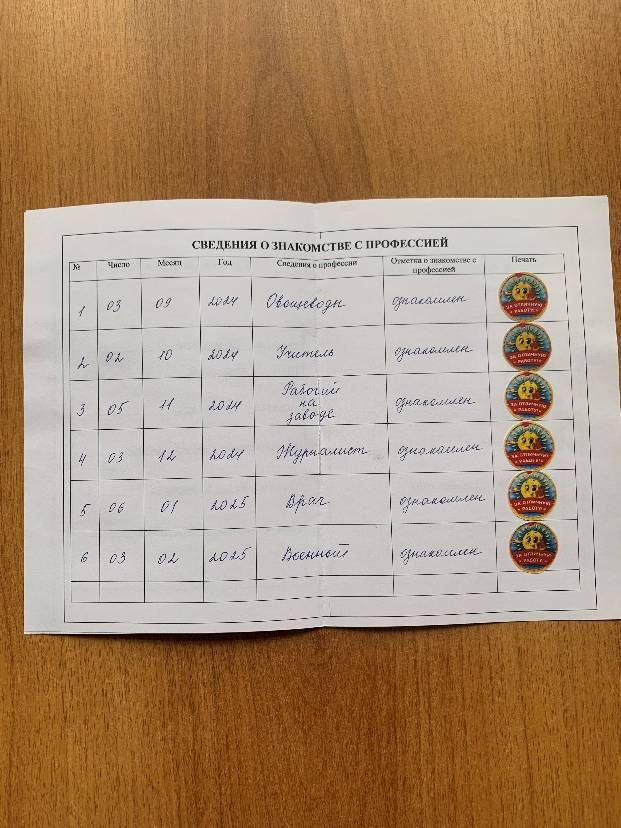 СВЕДЕНИЯ О ЗНАКОМСТВЕ С ПРОФЕССИЕЙ
№ Число Месяц Год Сведения о профессии Отметка о знакомстве с профессией Печать
1 03 09 2024 Овощеводы ознакомлен ЗА ОТЛИЧНУЮ РАБОТУ!
2 02 10 2024 Учитель ознакомлен ЗА ОТЛИЧНУЮ РАБОТУ!
3 05 11 2024 Рабочий на заводе ознакомлен ЗА ОТЛИЧНУЮ РАБОТУ!
4 03 12 2024 Журналист ознакомлен ЗА ОТЛИЧНУЮ РАБОТУ!
5 06 01 2025 Врач ознакомлен ЗА ОТЛИЧНУЮ РАБОТУ!
6 03 02 2025 Военный ознакомлен ЗА ОТЛИЧНУЮ РАБОТУ!